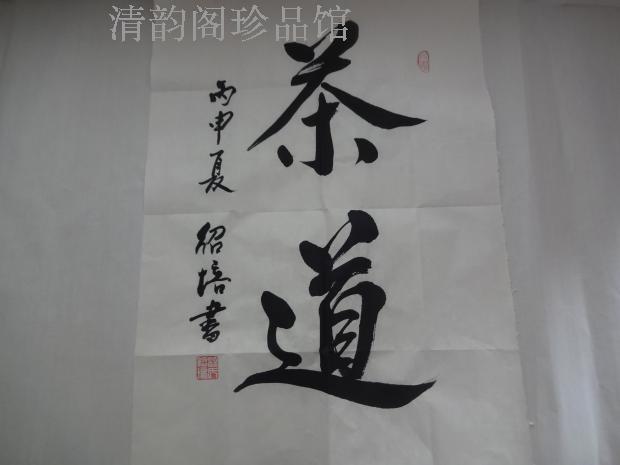 清韵阁珍品馆
茶道
丙申夏 绍培書